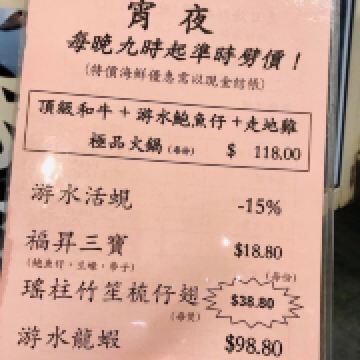 宵夜
每晚九時起準時劈價！
(特價海鮮優惠需以現金結帳)
頂級和牛＋游水鮑魚仔＋走地雞
極品火鍋(每份) $ 118.00
游水活蜆 -15%
福昇三寶 $18.80
(鮑魚仔，生蠔，帶子) (每份)
瑤柱竹笙梳仔翅 $38.80
(每煲)
游水龍蝦 $98.80